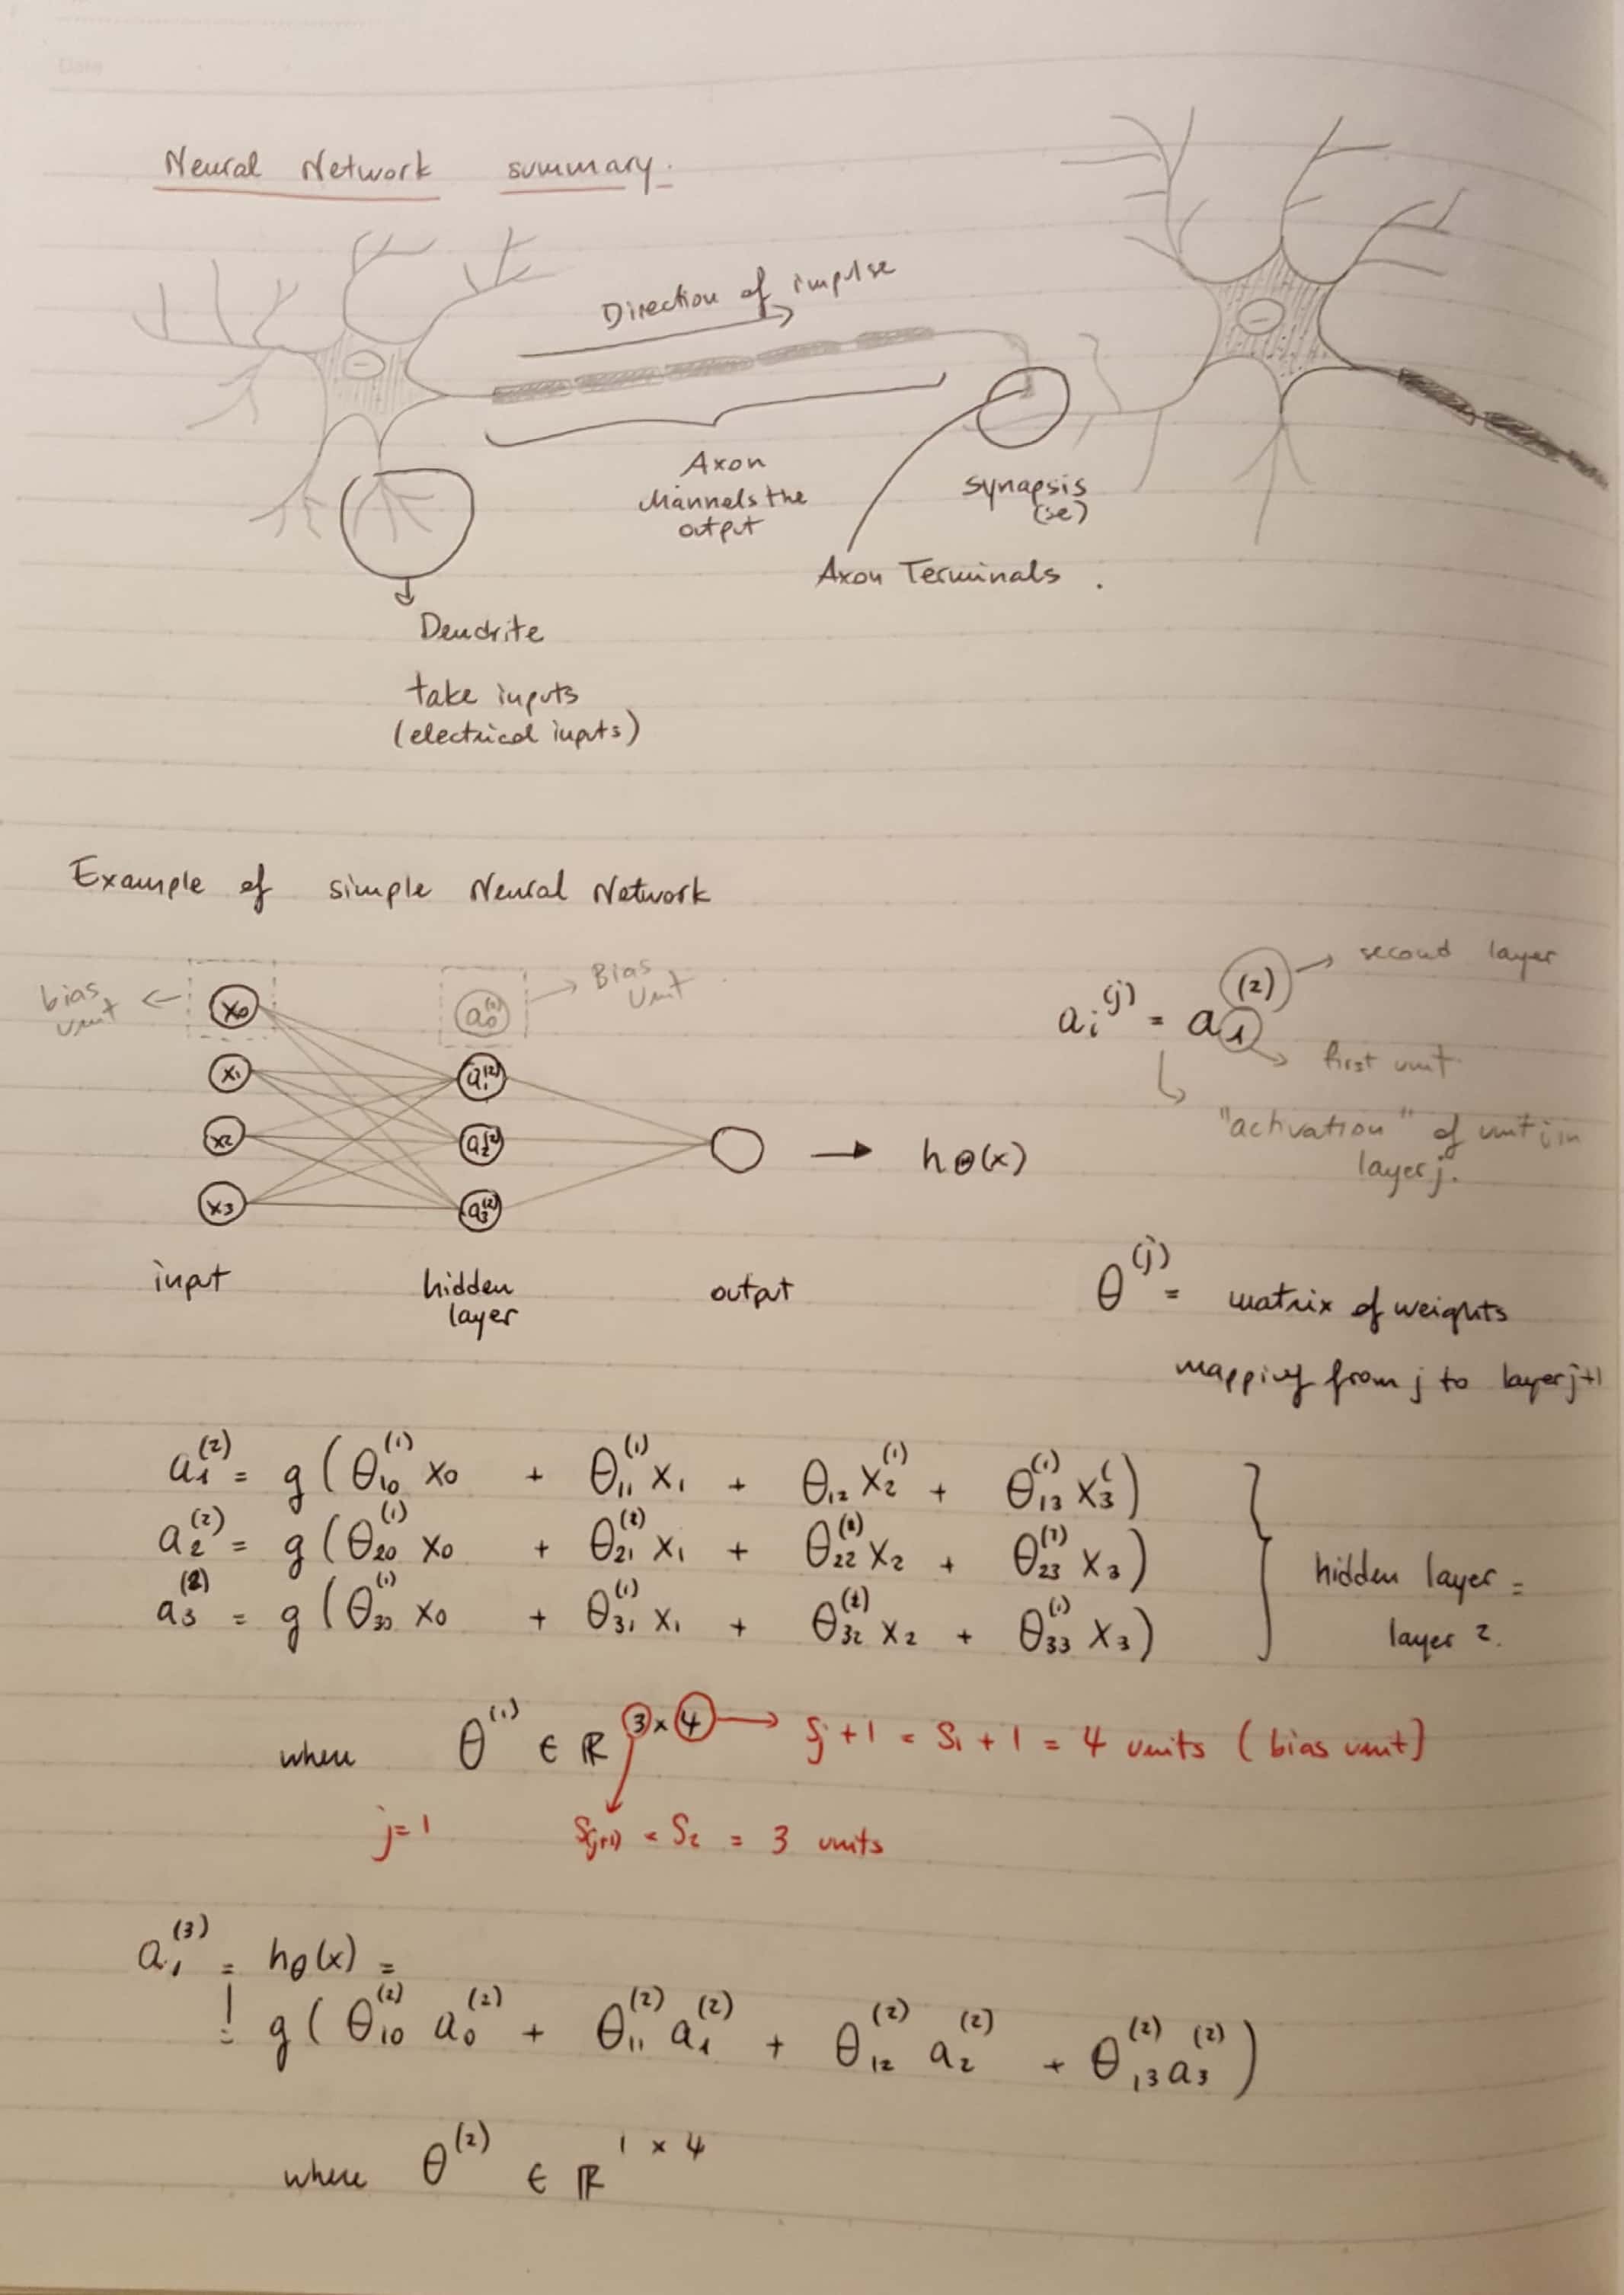 Neural Network summary.
Direction of impulse
Axon
channels the
output
synapsis
(se)
Axon Terminals.
Dendrite
take inputs
(electrical inputs)
Example of simple Neural Network
bias
unit
x₀
a₀⁽²⁾
Bias
Unit
x₁
a₁⁽²⁾
x₂
a₂⁽²⁾
x₃
a₃⁽²⁾
→ hΘ(x)
input
hidden
layer
output
aᵢ⁽ʲ⁾ = a₁⁽²⁾ → second layer
first unit
"activation" of unit i in
layer j.
θ⁽ʲ⁾ = matrix of weights
mapping from j to layer j+1
a₁⁽²⁾ = g(θ₁₀⁽¹⁾ x₀ + θ₁₁⁽¹⁾ x₁ + θ₁₂ x₂⁽¹⁾ + θ₁₃⁽¹⁾ x₃)
a₂⁽²⁾ = g(θ₂₀⁽¹⁾ x₀ + θ₂₁⁽¹⁾ x₁ + θ₂₂⁽¹⁾ x₂ + θ₂₃⁽¹⁾ x₃)
a₃⁽²⁾ = g(θ₃₀⁽¹⁾ x₀ + θ₃₁⁽¹⁾ x₁ + θ₃₂⁽¹⁾ x₂ + θ₃₃⁽¹⁾ x₃)
hidden layer =
layer 2.
where θ⁽¹⁾ ∈ ℝ³ˣ⁴ → Sⱼ + 1 = S₁ + 1 = 4 units (bias unit)
j=1 S₍ⱼ₊₁₎ = S₂ = 3 units
a₁⁽³⁾ = hθ(x) =
= g(θ₁₀⁽²⁾ a₀⁽²⁾ + θ₁₁⁽²⁾ a₁⁽²⁾ + θ₁₂⁽²⁾ a₂⁽²⁾ + θ₁₃⁽²⁾ a₃⁽²⁾)
where θ⁽²⁾ ∈ ℝ¹ˣ⁴